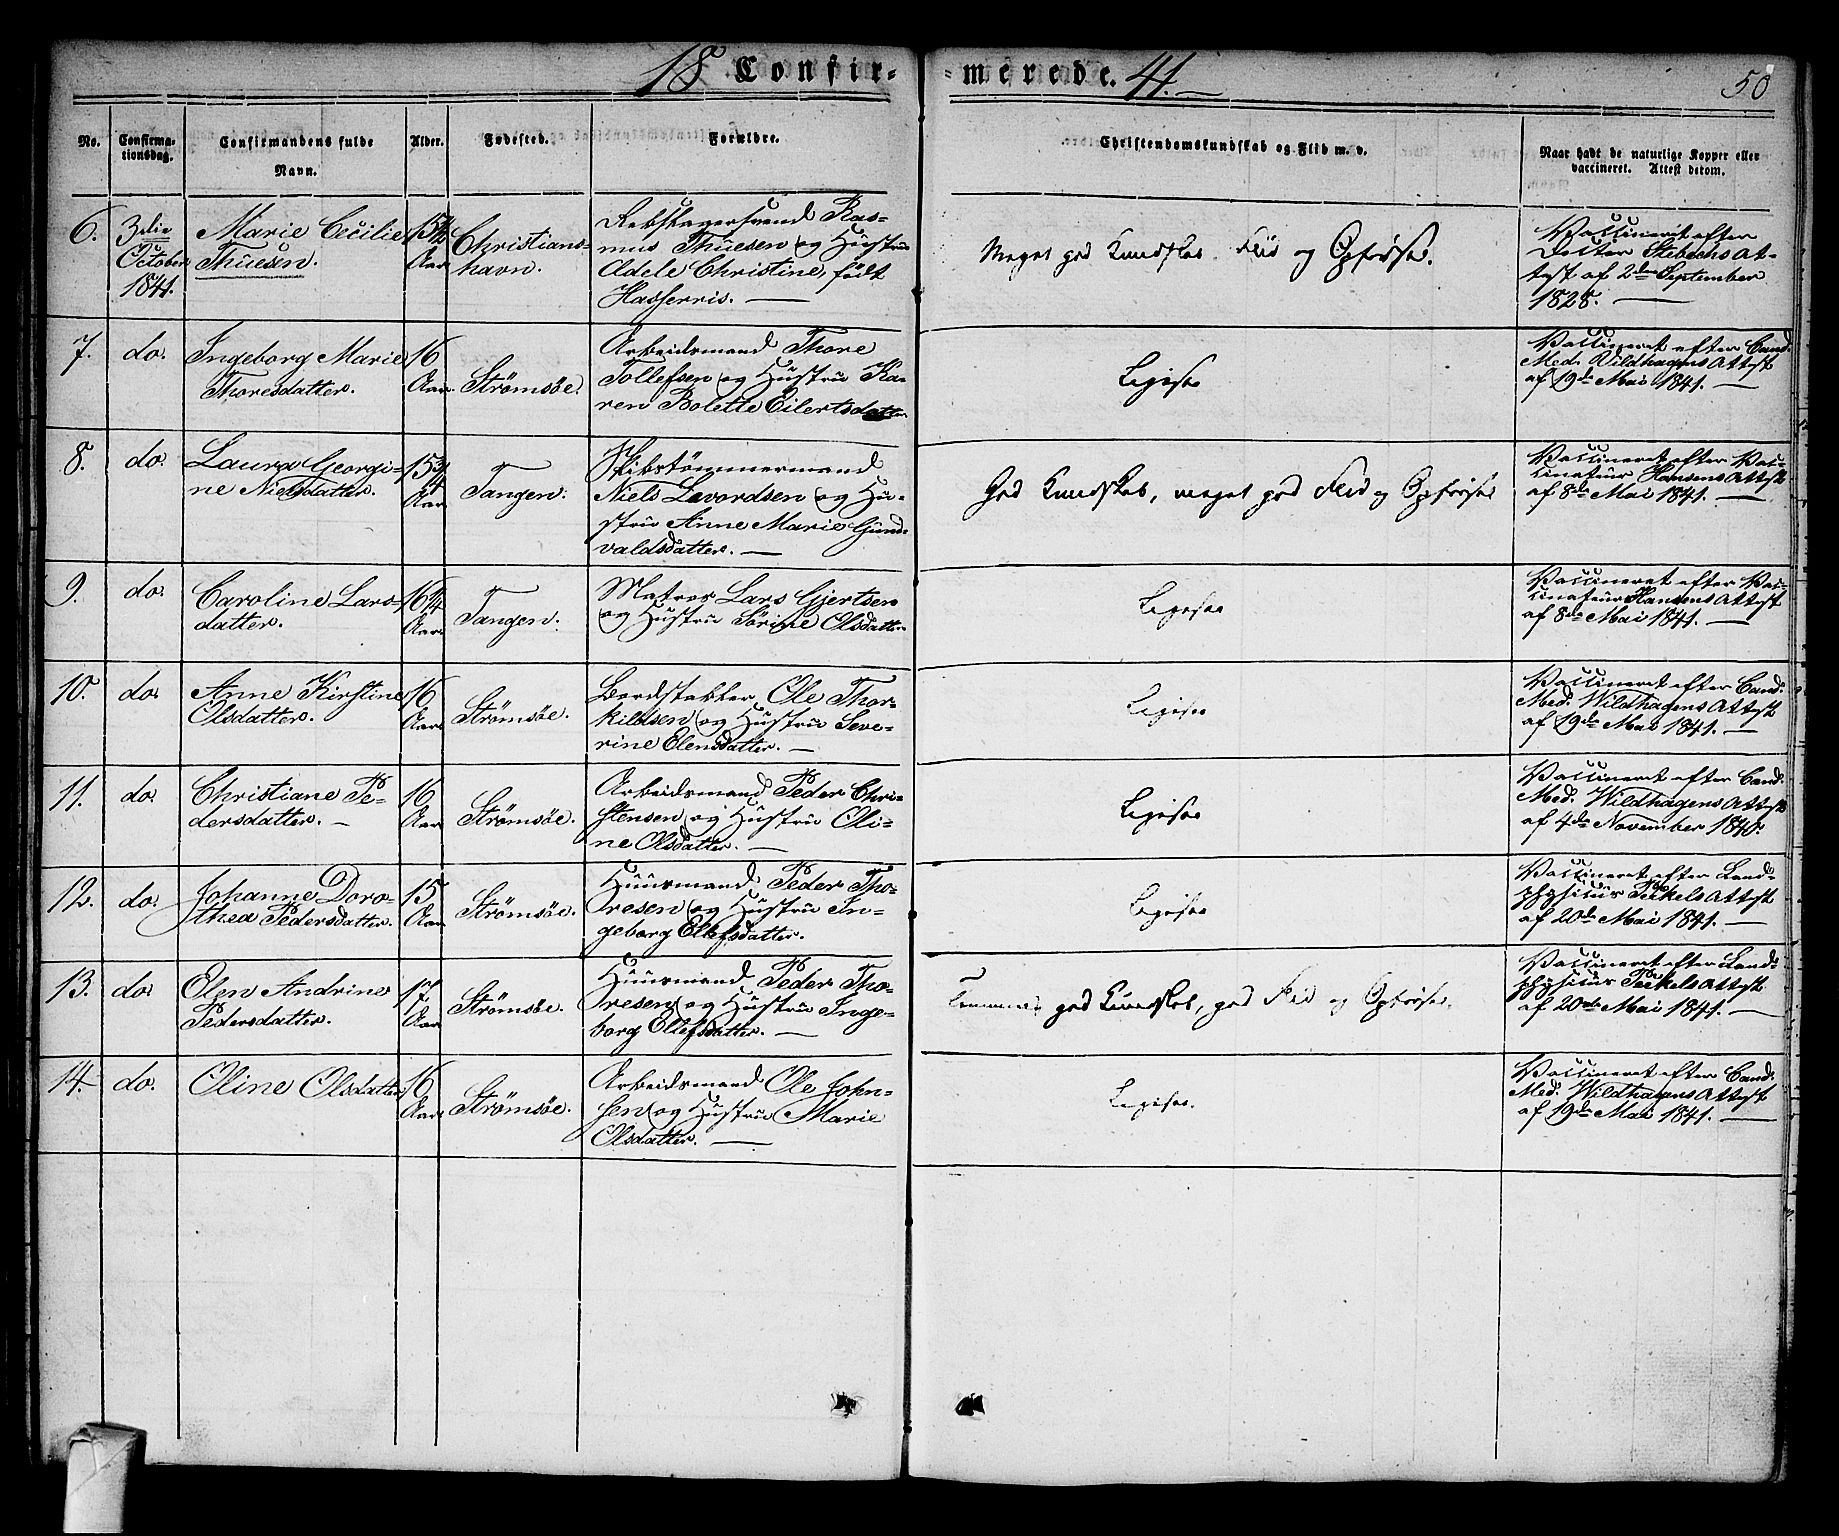 18 Confir-merede. 41.
50
No.
Confirma-
tionsdag.
Confirmandens fulde
Navn.
Alder.
Fødested.
Forældre.
Christendomskundskab og Flid m. v.
Naar havt de naturlige Kopper eller
vaccineret. Attest derom.
6.
3die
October
1841.
Marie Cecilie
Thuesen.
15 1/2
Aar
Christians-
havn.
Rebslagersvend Ras-
mus Thuesen og Hustru
Adele Christine, født
Hasferris.
Meget god Kundskab. Flid og Opførsel.
Vaccineret efter
Doctor Stibechs At-
test af 2den September
1828.
7.
do.
Ingeborg Marie
Thoresdatter.
16
Aar
Strømsøe.
Arbeidsmand Thore
Tollefsen og Hustru Ka-
ren Bolette Eilertsdatter
Ligesaa
Vaccineret efter Cand.
Med. Wildhagens Attest
af 19de Mai 1841.
8.
do.
Laura Georgi-
ne Nielsdatter.
15 3/4
Aar
Tangen.
Skibstømmermand
Niels Levordsen og Hu-
stru Anne Marie Gund-
valdsdatter.
God Kundskab, meget god Flid og Opførsel
Vaccineret efter Vac-
cinateur Hansens Attest
af 8de Mai 1841.
9.
do.
Caroline Lars-
datter.
16 1/4
Aar
Tangen.
Matros Lars Gjertsen
og Hustru Sörine Olsdatter
Ligesaa
Vaccineret efter Vac-
cinateur Hansens Attest
af 8de Mai 1841.
10.
do.
Anne Kirstine
Olsdatter.
16
Aar
Strømsøe.
Bordstabler Ole Thor-
kildsen og Hustru Seve-
rine Elensdatter.
Ligesaa
Vaccineret efter Cand.
Med. Wildhagens Attest
af 19de Mai 1841.
11.
do.
Christiane Pe-
dersdatter.
16
Aar
Strømsøe.
Arbeidsmand Peder Chri-
stensen og Hustru Oli-
ne Olsdatter.
Ligesaa
Vaccineret efter Cand.
Med. Wildhagens Attest
af 4de November 1840.
12.
do.
Johanne Doro-
thea Pedersdatter.
15
Aar
Strømsøe.
Huusmand Peder Tho-
resen og Hustru In-
geborg Ellefsdatter.
Ligesaa
Vaccineret efter Land-
physicus Peckels Attest
af 20de Mai 1841.
13.
do.
Olen Andrine
Pedersdatter.
17
Aar
Strømsøe.
Huusmand Peder Tho-
resen og Hustru Inge-
borg Ellefsdatter.
Temmelig god Kundskab, god Flid og Opførsel.
Vaccineret efter Land-
physicus Peckels Attest
af 20de Mai 1841.
14.
do.
Oline Olsdatter
16
Aar
Strømsøe.
Arbeidsmand Ole John-
sen og Hustru Marie
Olsdatter.
Ligesaa.
Vaccineret efter Cand.
Med. Wildhagens Attest
af 19de Mai 1841.